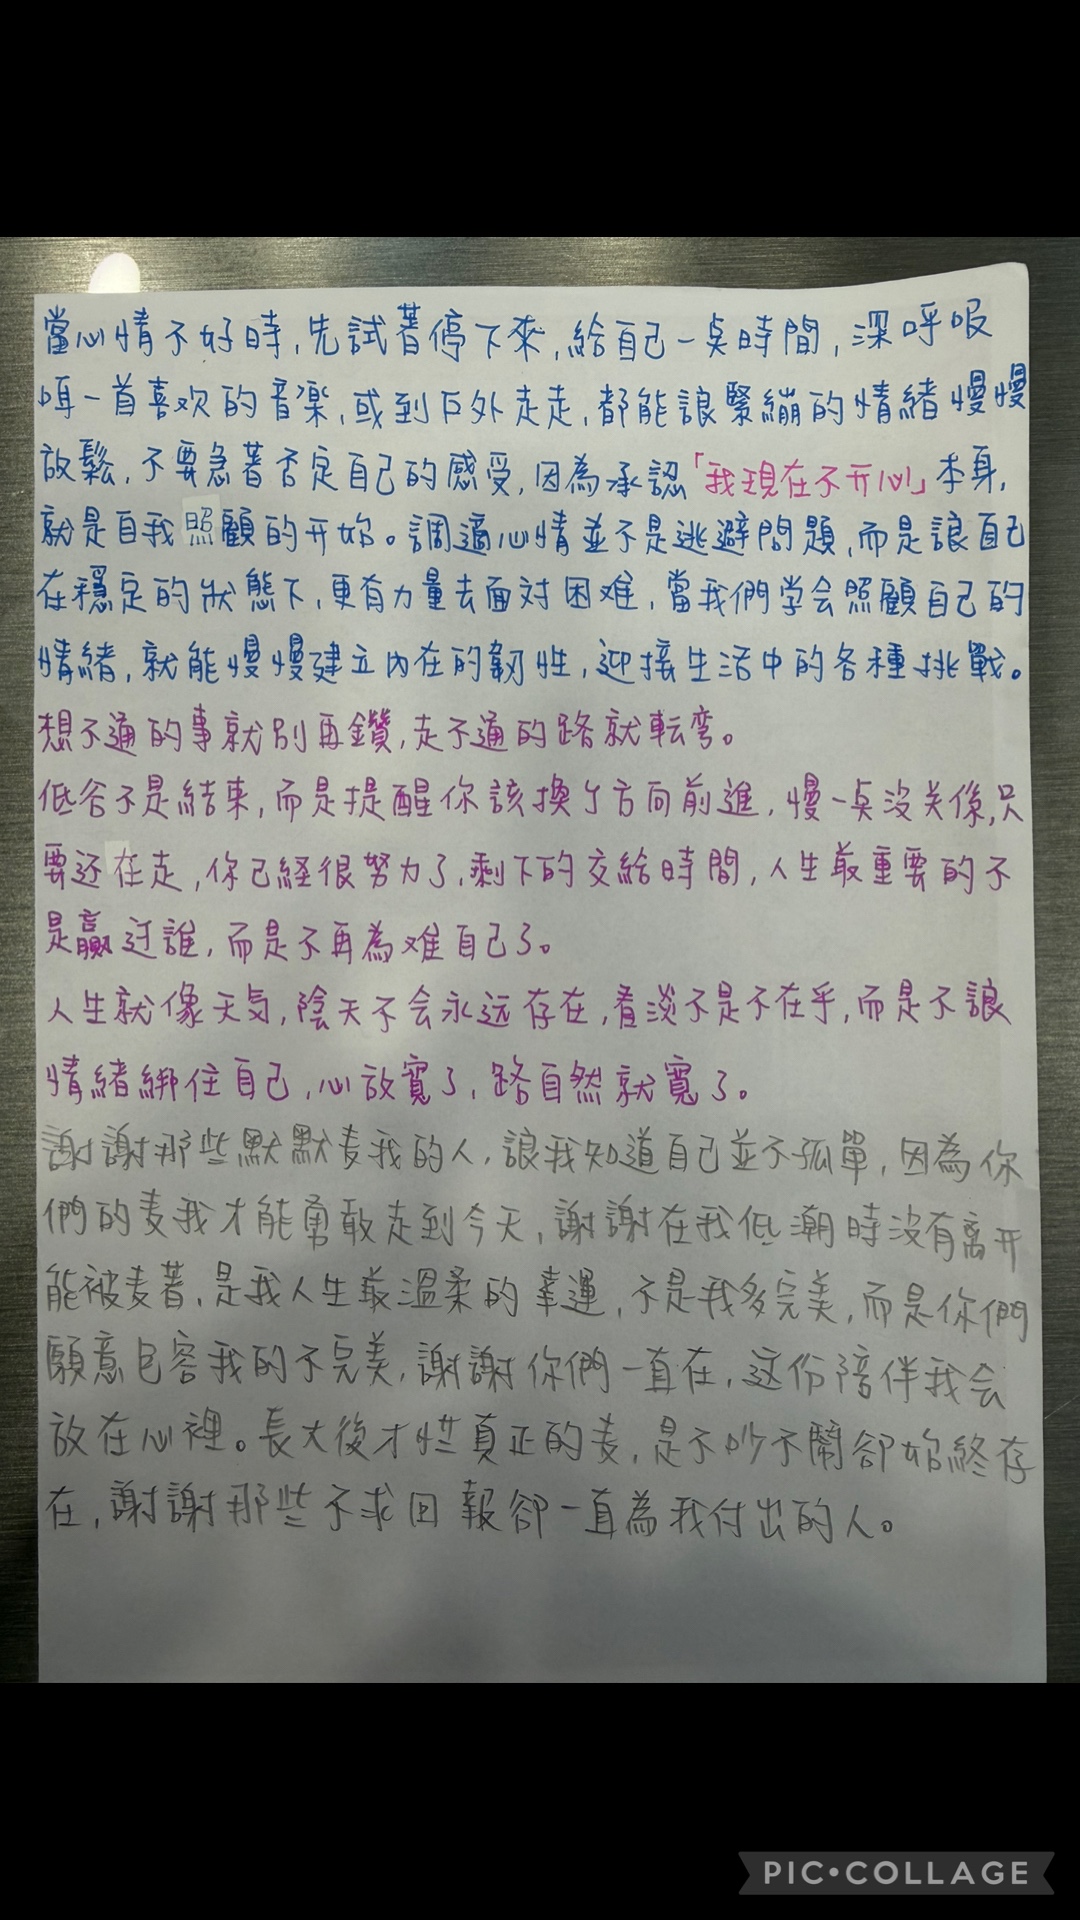 當心情不好時,先試著停下來,給自己一点時間,深呼吸
听一首喜欢的音楽,或到户外走走,都能讓緊繃的情緒慢慢
放鬆,不要急著否定自己的感受,因為承認「我現在不开心」本身,
就是自我照顧的开始。調適心情並不是逃避問題,而是讓自己
在穩定的狀態下,更有力量去面对困难,當我們学会照顧自己的
情緒,就能慢慢建立內在的韌性,迎接生活中的各種挑戰。
想不通的事就別再鑽,走不通的路就転弯。
低谷不是結束,而是提醒你該換个方向前進,慢一点没关係,只
要还在走,你已経很努力了,剩下的交給時間,人生最重要的不
是贏过誰,而是不再為难自己了。
人生就像天気,陰天不会永远存在,看淡不是不在乎,而是不讓
情緒綁住自己,心放寬了,路自然就寬了。
謝謝那些默默爱我的人,讓我知道自己並不孤單,因為你
們的爱我才能勇敢走到今天,謝謝在我低潮時没有离开
能被爱著,是我人生最溫柔的幸運,不是我多完美,而是你們
願意包容我的不完美,謝謝你們一直在,这份陪伴我会
放在心裡。長大後才懂真正的爱,是不吵不鬧卻始終存
在,謝謝那些不求回報卻一直為我付出的人。
PIC•COLLAGE